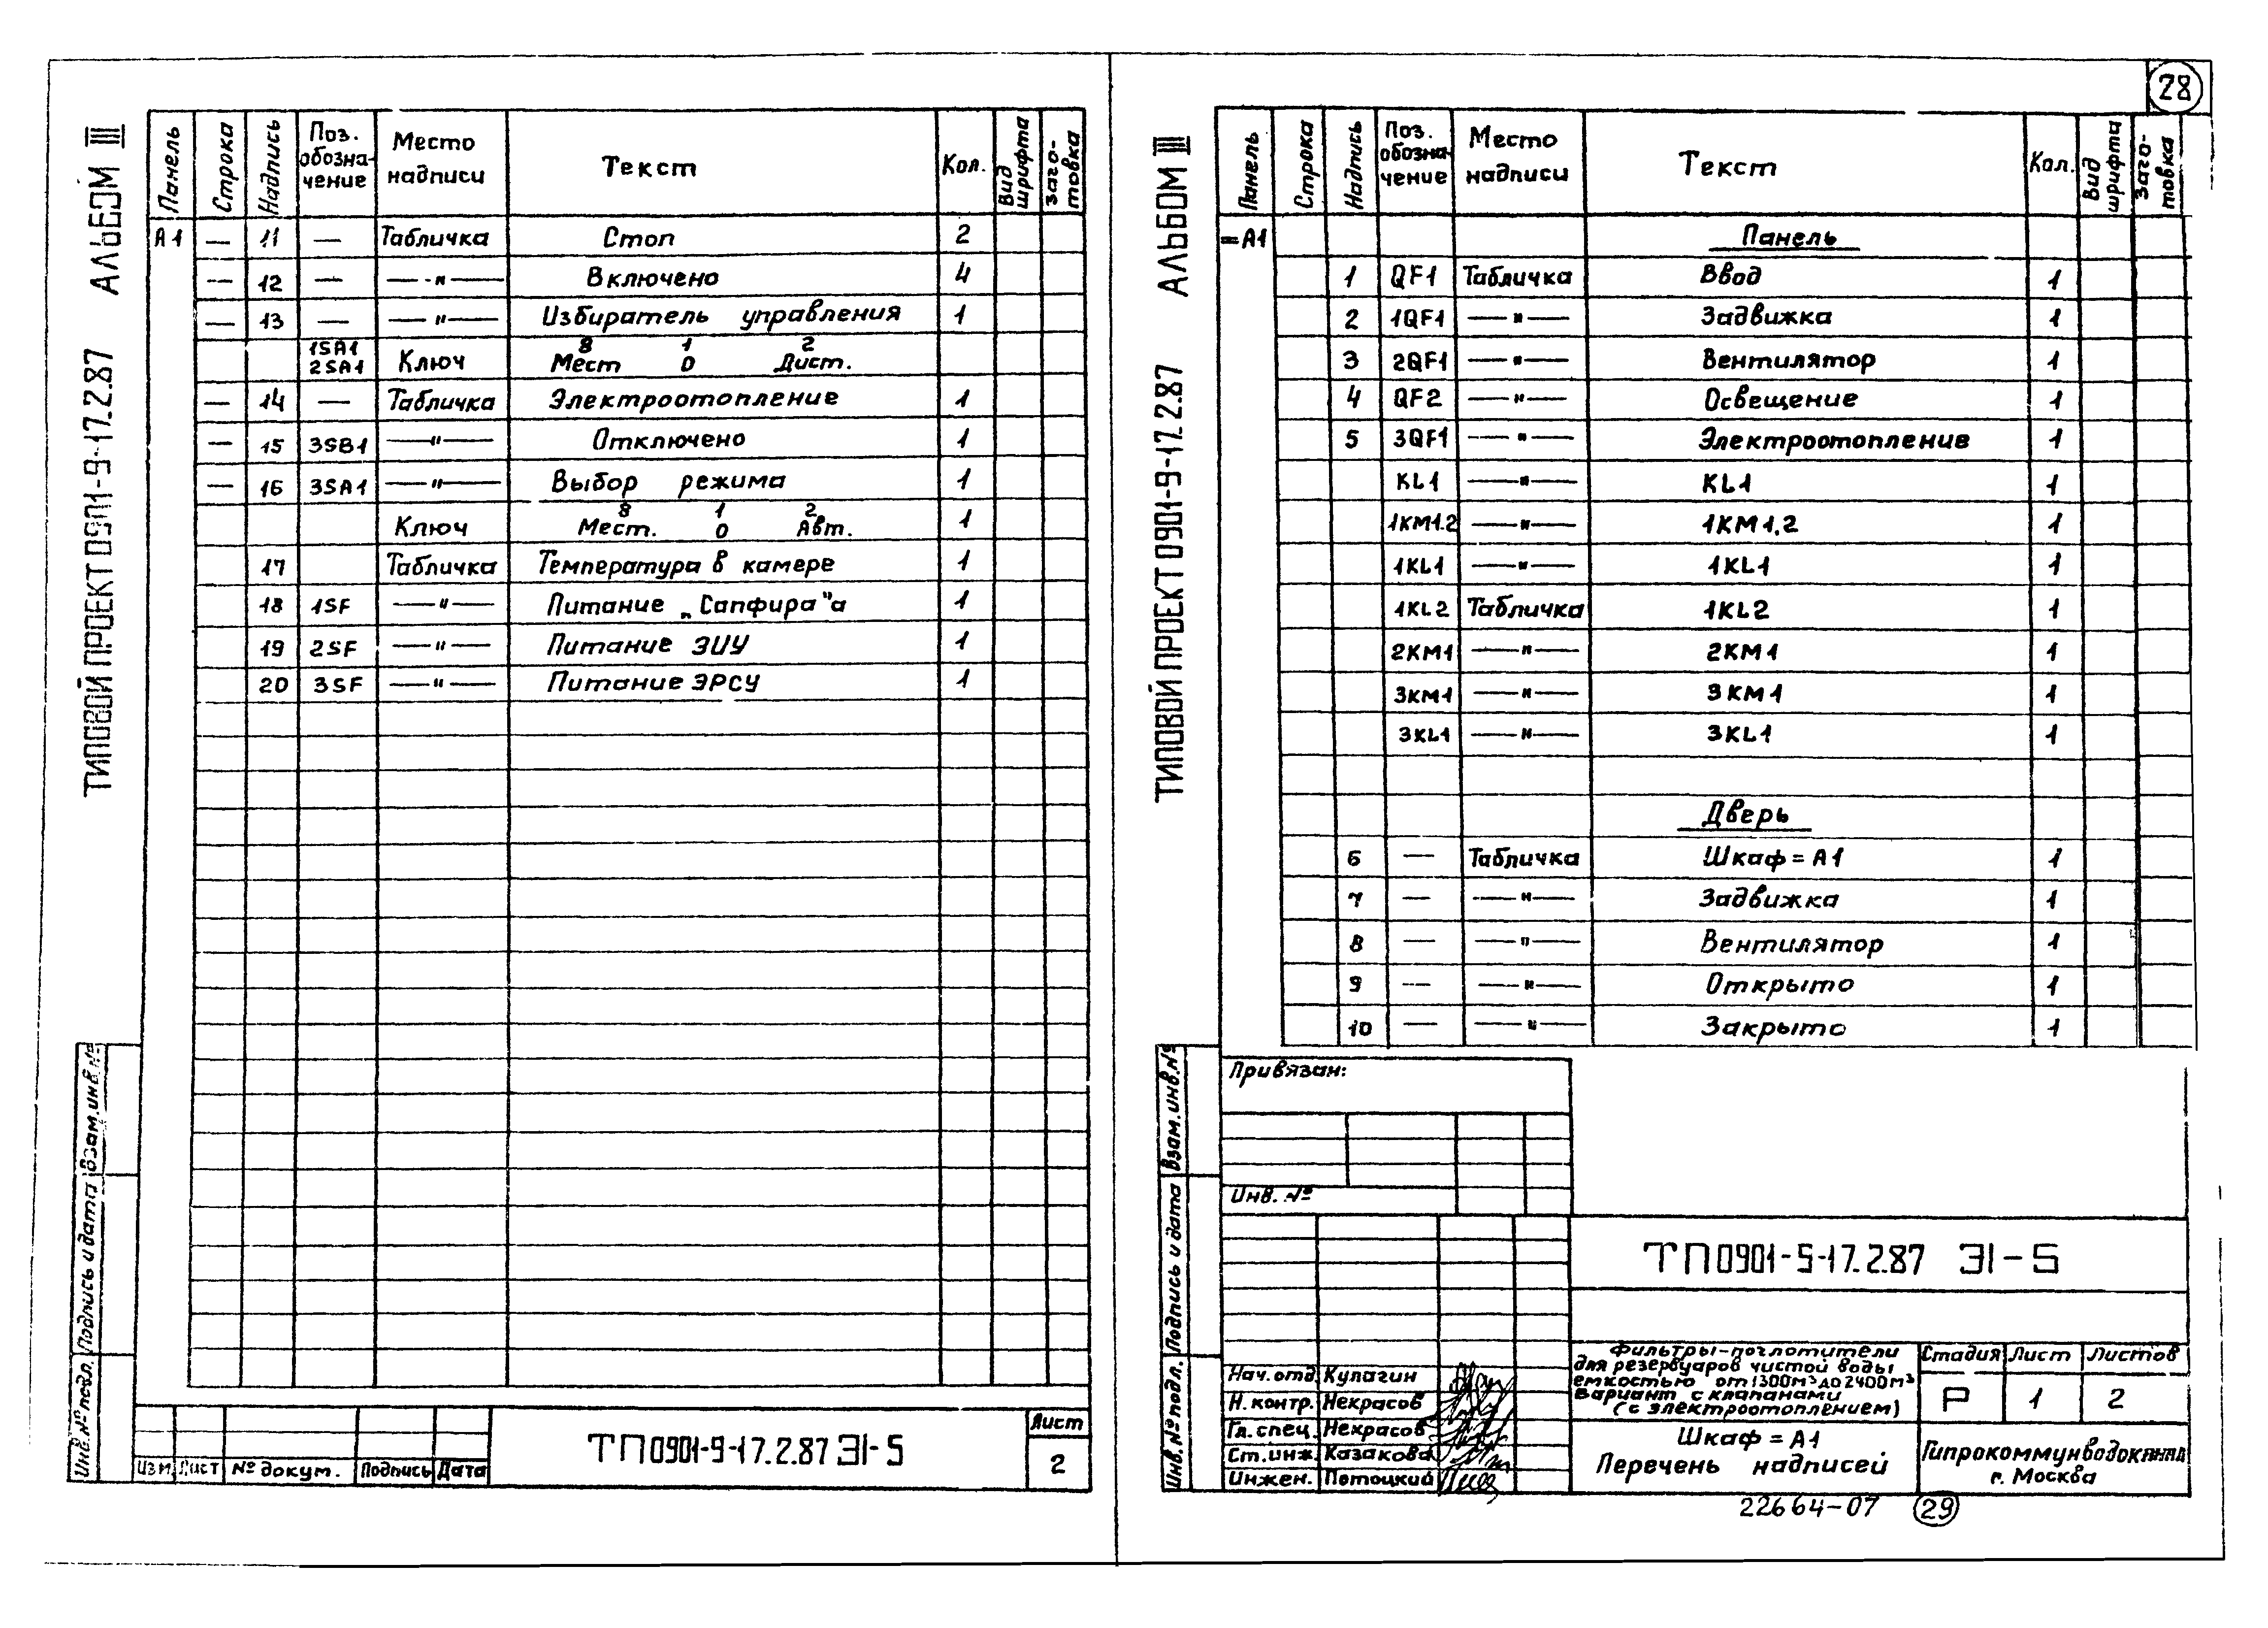 28
ТИПОВОЙ ПРОЕКТ 0901-9-17.2.87 АЛЬБОМ III
Панель Строка Надпись Поз. обозна-чение Место надписи Текст Кол. Вид шрифта Заго-товка
А1 — 11 — Табличка Стоп 2
— 12 — —"— Включено 4
— 13 — —"— Избиратель управления 1
1SA1 2SA1 Ключ 8 Мест 1 0 2 Дист.
— 14 — Табличка Электроотопление 1
— 15 3SB1 —"— Отключено 1
— 16 3SA1 —"— Выбор режима 1
Ключ 8 Мест. 1 0 2 Авт. 1
17 Табличка Температура в камере 1
18 1SF —"— Питание „Сапфира"а 1
19 2SF —"— Питание ЗИУ 1
20 3SF —"— Питание ЭРСУ 1
Инв.№ подл. Подпись и дата Взам.инв.№
Изм. Лист № докум. Подпись Дата
ТП 0901-9-17.2.87 ЭI-5
Лист
2
ТИПОВОЙ ПРОЕКТ 0901-9-17.2.87 АЛЬБОМ III
Панель Строка Надпись Поз. обозна-чение Место надписи Текст Кол. Вид шрифта Заго-товка
=А1 Панель
1 QF1 Табличка Ввод 1
2 1QF1 —"— Задвижка 1
3 2QF1 —"— Вентилятор 1
4 QF2 —"— Освещение 1
5 3QF1 —"— Электроотопление 1
KL1 —"— KL1 1
1KM1.2 —"— 1KM1,2 1
1KL1 —"— 1KL1 1
1KL2 Табличка 1KL2 1
2KM1 —"— 2KM1 1
3KM1 —"— 3KM1 1
3KL1 —"— 3KL1 1
Дверь
6 — Табличка Шкаф = А1 1
7 — —"— Задвижка 1
8 — —"— Вентилятор 1
9 — —"— Открыто 1
10 — —"— Закрыто 1
Инв.№ подл. Подпись и дата Взам.инв.№
Привязан:
Инв. №
ТП 0901-5-17.2.87 ЭI-5
Нач.отд. Кулагин
Н.контр. Некрасов
Гл.спец. Некрасов
Ст.инж. Казакова
Инжен. Потоцкий
Фильтры-поглотители
для резервуаров чистой воды
емкостью от 1300м³ до 2400м³
Вариант с клапанами
(с электроотоплением)
Стадия Лист Листов
Р 1 2
Шкаф = А1
Перечень надписей
Гипрокоммунводоканал
г. Москва
22664-07 29